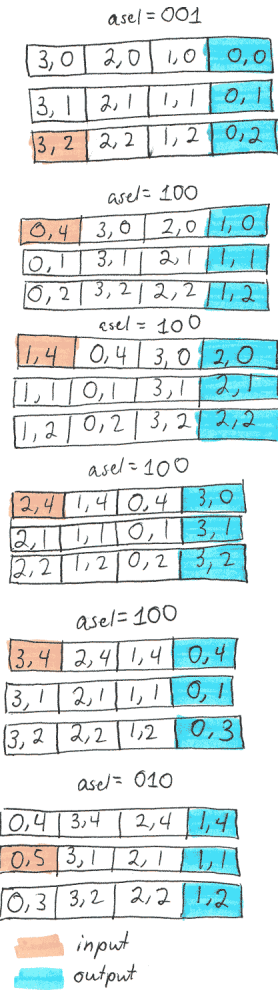 asel=001
3,0 2,0 1,0 0,0
3,1 2,1 1,1 0,1
3,2 2,2 1,2 0,2
asel=100
0,4 3,0 2,0 1,0
0,1 3,1 2,1 1,1
0,2 3,2 2,2 1,2
asel=100
1,4 0,4 3,0 2,0
1,1 0,1 3,1 2,1
1,2 0,2 3,2 2,2
asel=100
2,4 1,4 0,4 3,0
2,1 1,1 0,1 3,1
2,2 1,2 0,2 3,2
asel=100
3,4 2,4 1,4 0,4
3,1 2,1 1,1 0,1
3,2 2,2 1,2 0,3
asel= 010
0,4 3,4 2,4 1,4
0,5 3,1 2,1 1,1
0,3 3,2 2,2 1,2
input
output